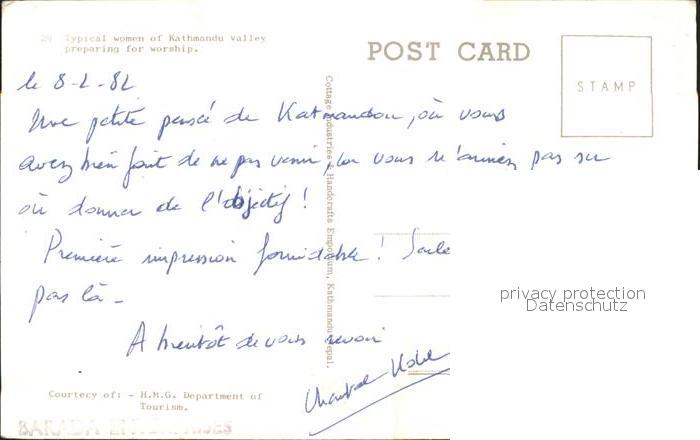 20 Typical women of Kathmandu valley
preparing for worship.
POST CARD
STAMP
le 8-2-82
Une petite pensée de Katmandou, où vous
avez bien fait de ne pas venir, car vous n'auriez pas su
où donner de l'objectif !
Première impression formidable !
pas là -
A bientôt de vous revoir
Chantal
Cottage Industries & Handicrafts Emporium, Kathmandu Nepal.
privacy protection
Datenschutz
Courtesy of: - H.M.G. Department of
Tourism.